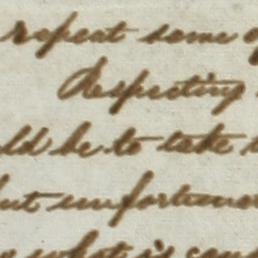 repeat some
Respecting
ld be to take
but unfortuna
what is